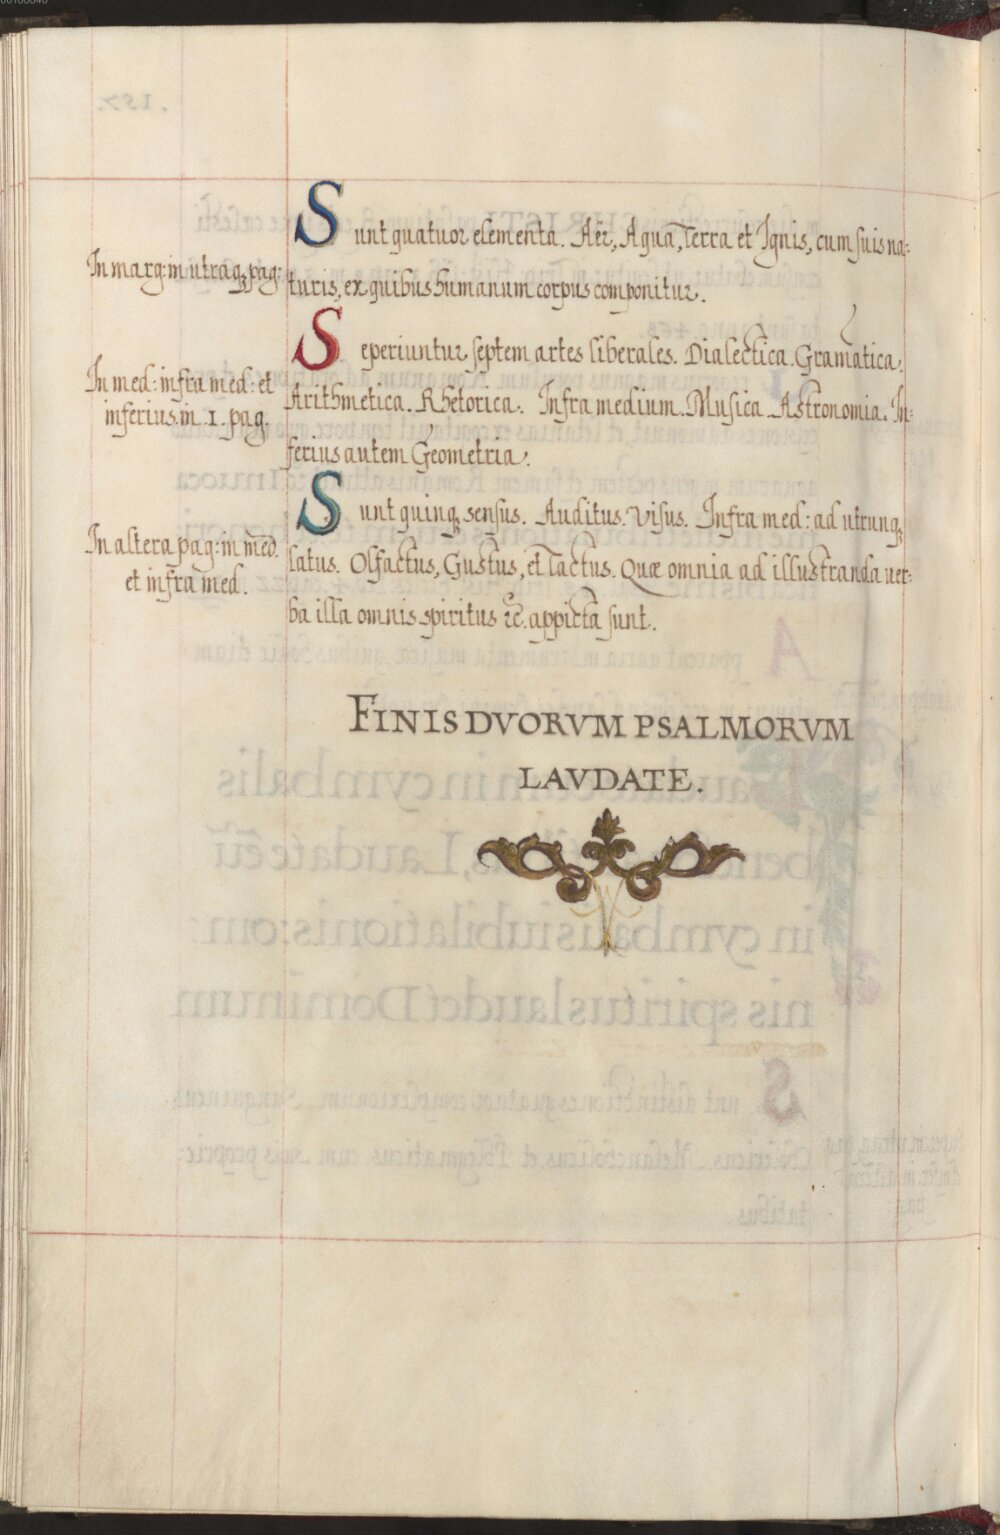 Sunt quatuor elementa. Aër, Aqua, Terra et Ignis, cum suis na-
In marg: in utraq; pag:
turis, ex quibus humanum corpus componitur.
Seperiuntur septem artes liberales. Dialectica. Gramatica.
In med: infra med: et
inferius in .1. pag.
Arithmetica. Rhetorica. Infra medium. Musica. Astronomia. In-
ferius autem Geometria.
Sunt quinq; sensus. Auditus. Visus. Infra med: ad utrunq;
In altera pag: in med.
et infra med.
latus. Olfactus, Gustus, et Tactus. Quæ omnia ad illustranda ver-
ba illa omnis spiritus ꝛc. appicta sunt.
FINIS DVORVM PSALMORVM
LAVDATE.